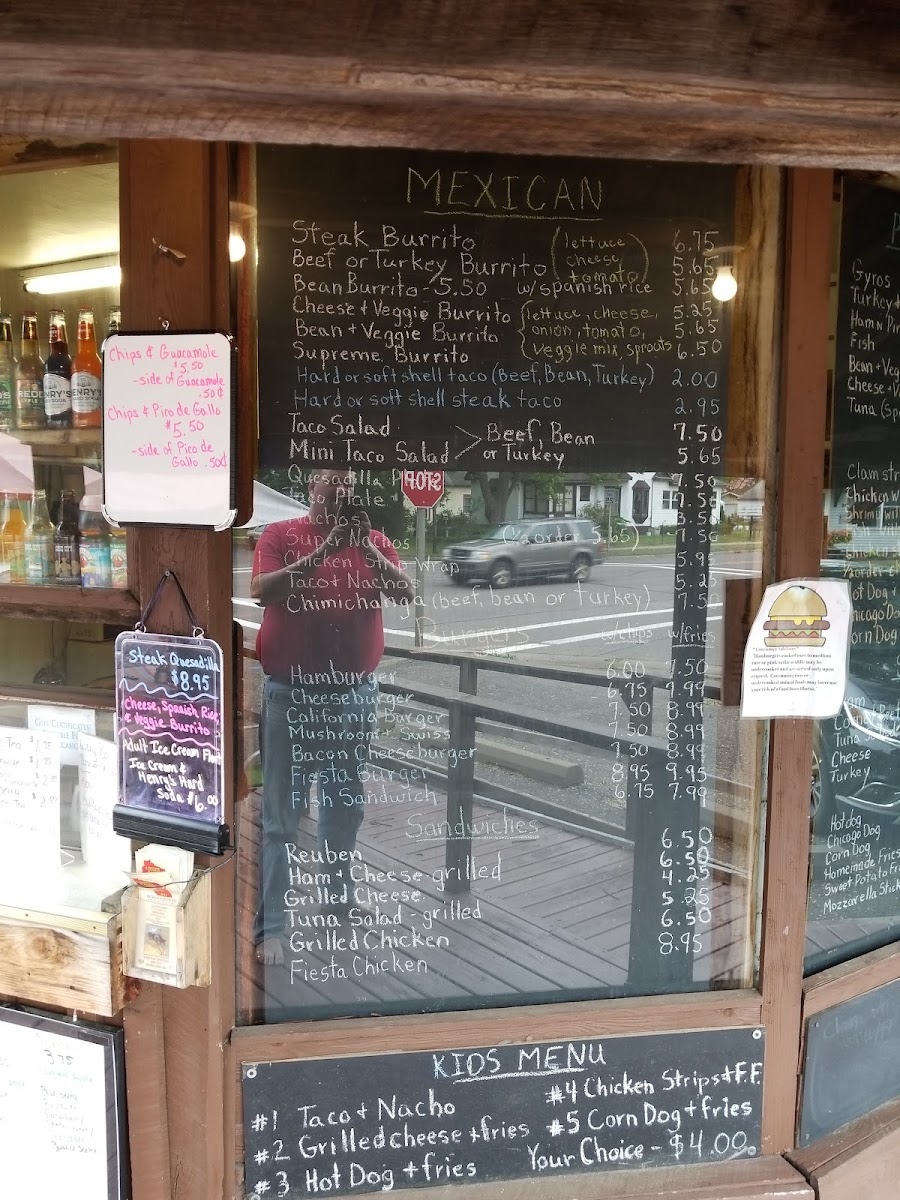 MEXICAN
Steak Burrito 6.75
Beef or Turkey Burrito (lettuce cheese tomato) 5.65
Bean Burrito - 5.50 w/spanish rice 5.65
Cheese + Veggie Burrito 5.25
Bean + Veggie Burrito 5.65
(lettuce, cheese,
onion, tomato,
veggie mix, sprouts
Supreme Burrito 6.50
Hard or soft shell taco (Beef, Bean, Turkey) 2.00
Hard or soft shell steak taco 2.95
Taco Salad 7.50
Mini Taco Salad > Beef, Bean or Turkey 5.65
Quesadilla 7.50
Taco Plate
Nachos
Super Nachos (½ order 5.65) 7.50
Chicken Strip Wrap 5.95
Taco + Nachos 5.25
Chimichanga (beef, bean or turkey) 7.50
Burgers w/chips w/fries
Hamburger 6.00 7.50
Cheeseburger 6.75 7.99
California Burger 7.50 8.99
Mushroom + Swiss 7.50 8.99
Bacon Cheeseburger 7.50 8.99
Fiesta Burger 8.95 9.95
Fish Sandwich 6.75 7.99
Sandwiches
Reuben 6.50
Ham + Cheese - grilled 6.50
Grilled Cheese 4.25
Tuna Salad - grilled 5.25
Grilled Chicken 6.50
Fiesta Chicken 8.95
KIDS MENU
#1 Taco + Nacho
#2 Grilled cheese + fries
#3 Hot Dog + fries
#4 Chicken Strips + F.F.
#5 Corn Dog + fries
Your Choice - $4.00
Chips & Guacamole
$5.50
- side of Guacamole
.50¢
Chips & Pico de Gallo
$5.50
- side of Pico de
Gallo .50¢
Steak Quesadilla
$8.95
Cheese, Spanish Rice,
& Veggie Burrito
Adult Ice Cream Float
Ice Cream &
Henry's Hard
Soda $6.00
GIFT CERTIFICATES
STOP
Gyros
Turkey
Ham N
Fish
Bean + Veg
Cheese +
Tuna
Clam
Chicken
Shrimp
Hot Dog
Chicago Dog
Corn Dog
Tuna
Cheese
Turkey
Hotdog
Chicago Dog
Corn Dog
Homemade Fries
Sweet Potato
Mozzarella Stick